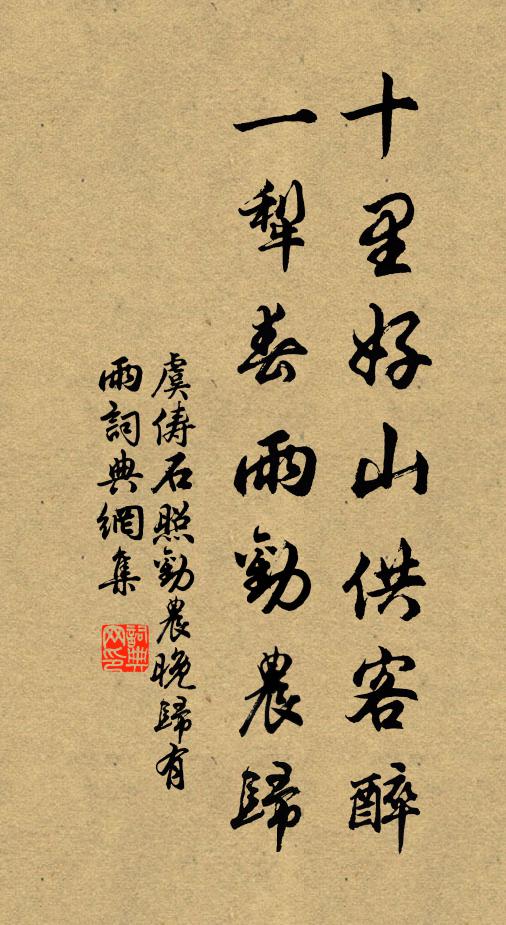 十里好山供客醉
一犁春雨勸農歸
虞儔石照勸農晚歸有
雨詞典網集
詞典網印